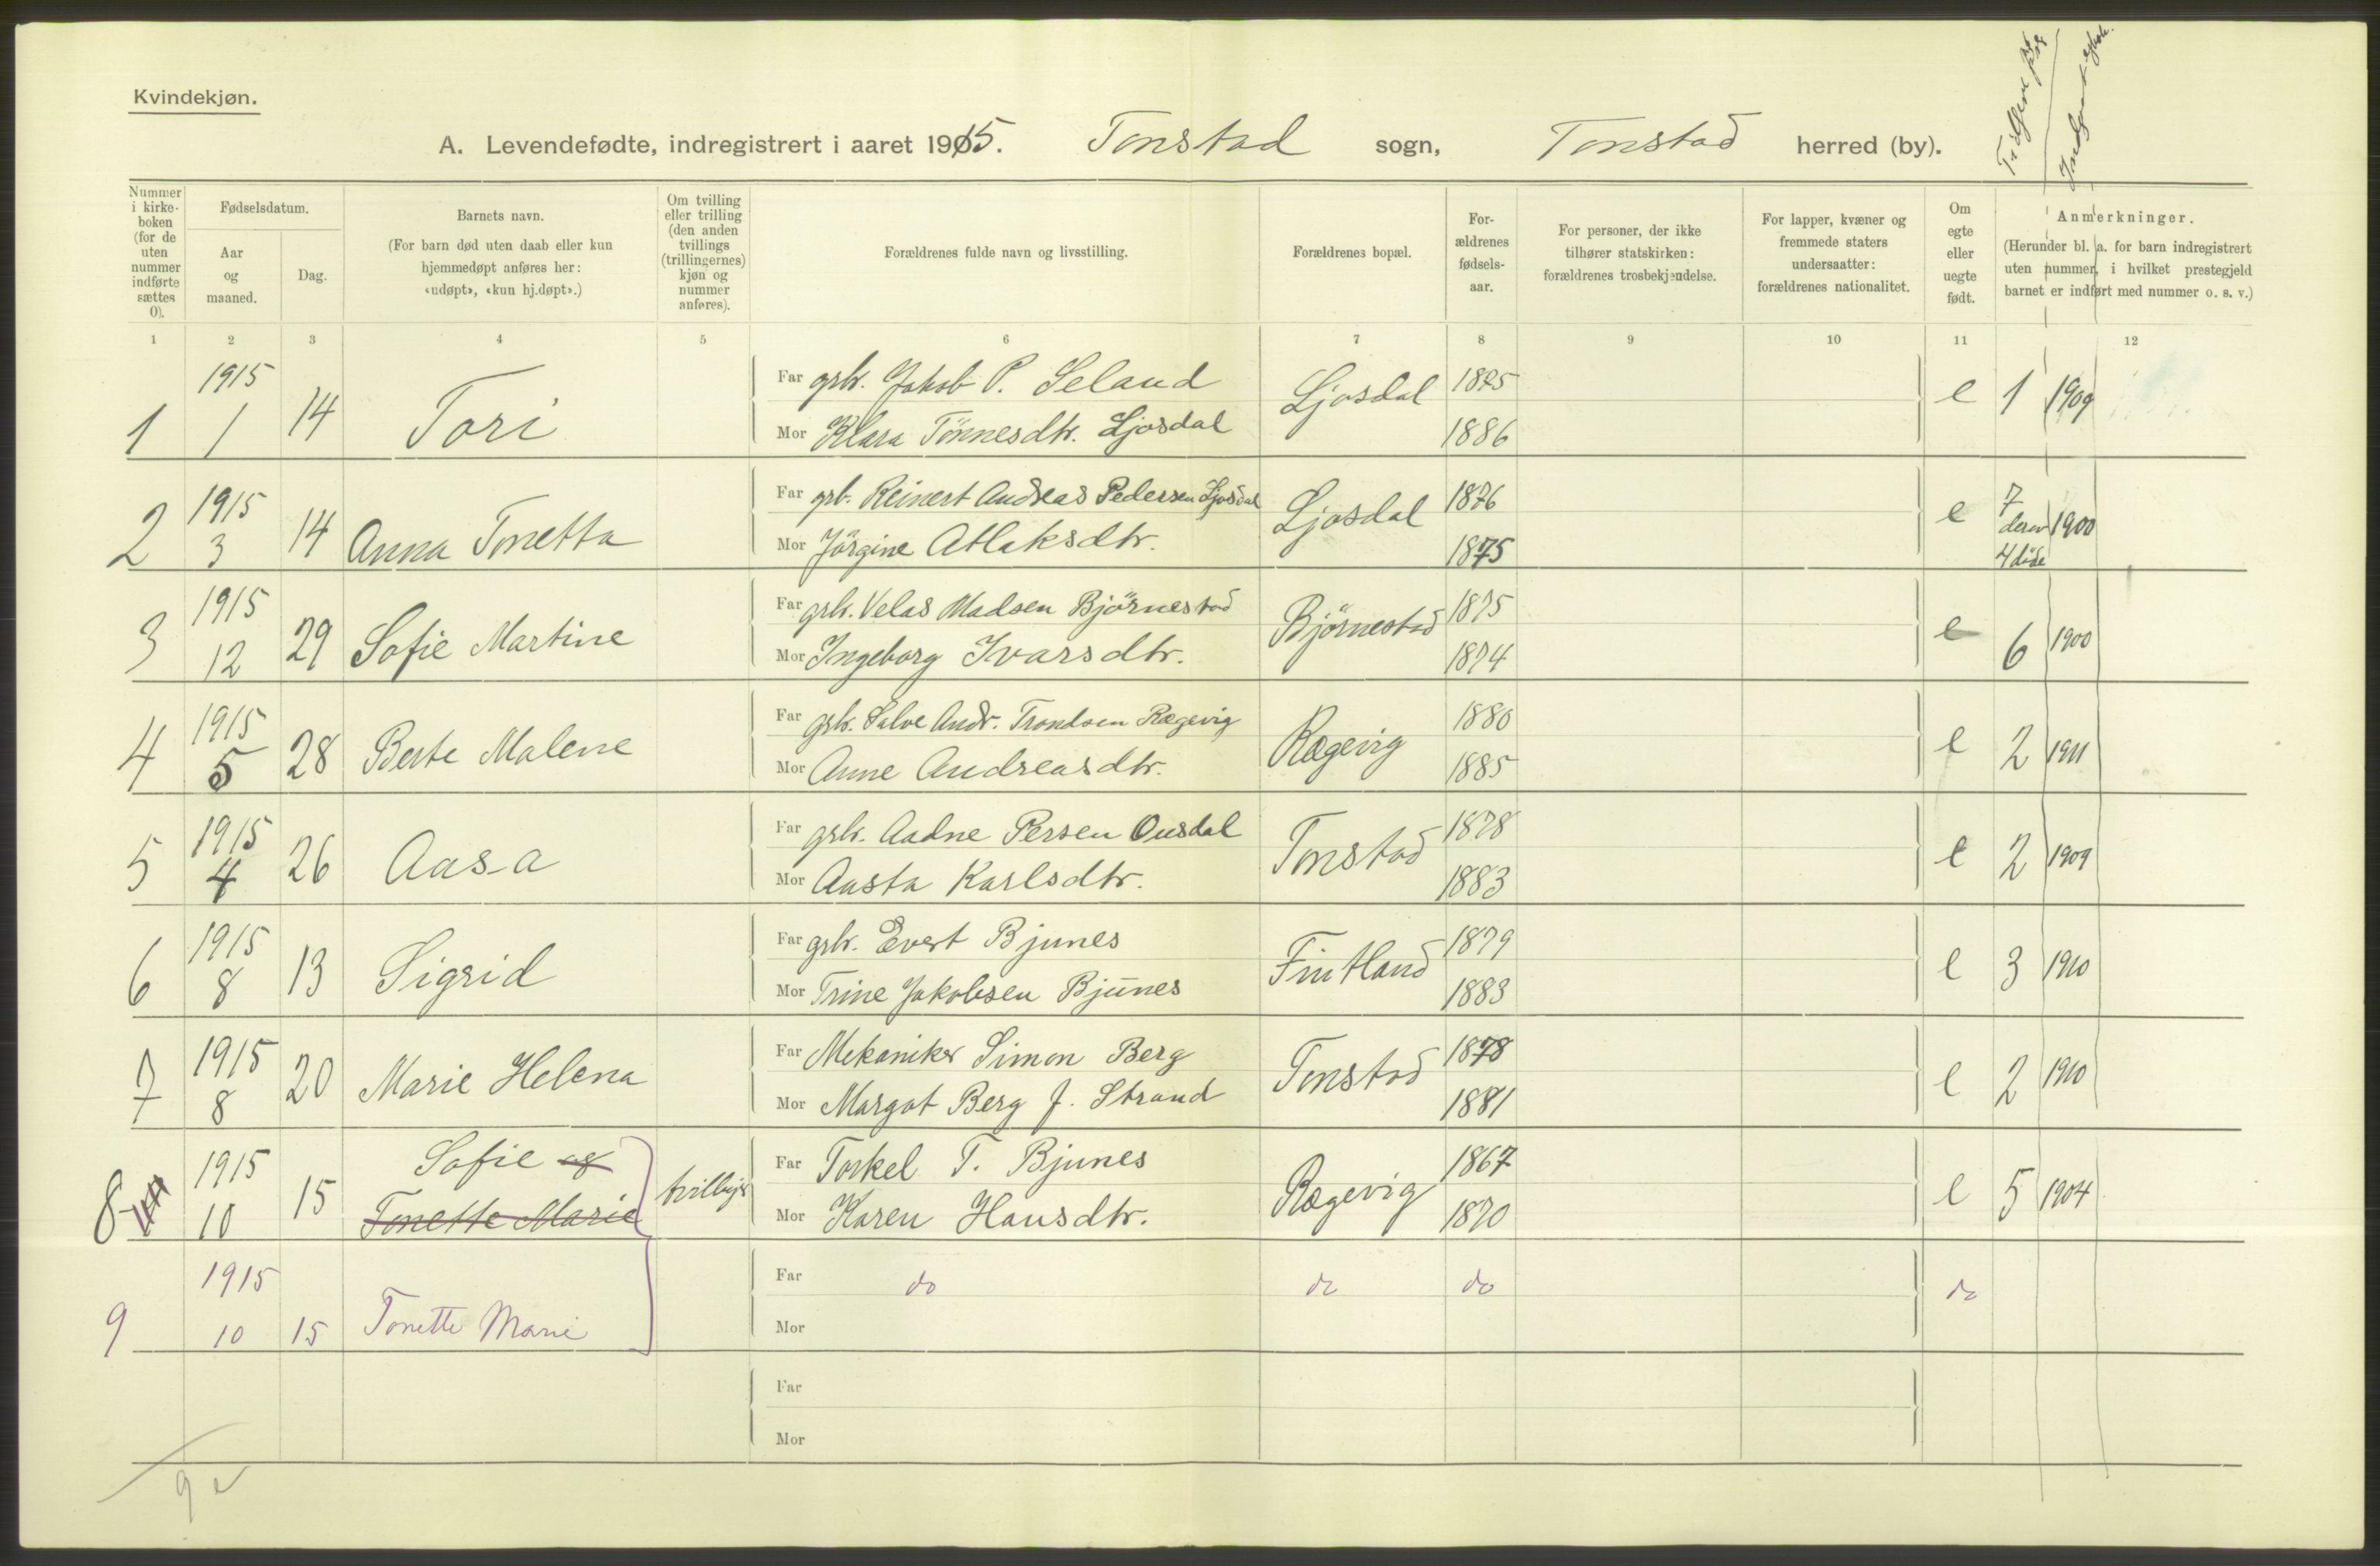 Kvindekjøn.
A. Levendefødte, indregistrert i aaret 1915. Tonstad sogn, Tonstad herred (by).
Nummer i kirke-boken (for de uten nummer indførte sættes 0).
Fødselsdatum.
Aar og maaned.
Dag.
Barnets navn.
(For barn død uten daab eller kun hjemmedøpt anføres her: «udøpt», «kun hj.døpt».)
Om tvilling eller trilling (den anden tvillings (trillingernes) kjøn og nummer anføres).
Forældrenes fulde navn og livsstilling.
Forældrenes bopæl.
For-ældrenes fødsels-aar.
For personer, der ikke tilhører statskirken: forældrenes trosbekjendelse.
For lapper, kvæner og fremmede staters undersaatter: forældrenes nationalitet.
Om egte eller uegte født.
Anmerkninger.
(Herunder bl. a. for barn indregistrert uten nummer, i hvilket prestegjeld barnet er indført med nummer o. s. v.)
1 2 3 4 5 6 7 8 9 10 11 12
1 1915 1 14 Tori Far grbr. Jakob P. Seland Ljosdal 1875 e 1 1909
Mor Klara Tönnesdtr. Ljosdal 1886
2 1915 3 14 Anna Tonetta Far grb. Reinert Andreas Pedersen Ljosdal Ljosdal 1876 e 7 derav 4 döde 1900
Mor Jörgine Atlaksdtr. 1875
3 1915 12 29 Sofie Martine Far grbr. Velas Madsen Björnestad Björnestad 1875 e 6 1900
Mor Ingeborg Ivarsdtr. 1874
4 1915 5 28 Berte Malene Far grbr. Salve Andr. Trondsen Rægevig Rægevig 1880 e 2 1911
Mor Anne Andreasdtr. 1885
5 1915 4 26 Aasa Far grbr. Aadne Persen Ousdal Tonstad 1878 e 2 1909
Mor Aasta Karlsdtr. 1883
6 1915 8 13 Sigrid Far grbr. Evert Bjunes Fintland 1879 e 3 1910
Mor Trine Jakobsen Bjunes 1883
7 1915 8 20 Marie Helena Far Mekaniker Simon Berg Tonstad 1878 e 2 1910
Mor Margot Berg f. Strand 1881
8 1915 10 15 Sofie og Tonette Marie tvillinger Far Torkel T. Bjunes Rægevig 1867 e 5 1904
Mor Karen Hansdtr. 1870
9 1915 10 15 Tonette Marie Far do do do do
Mor
Far
Mor
9